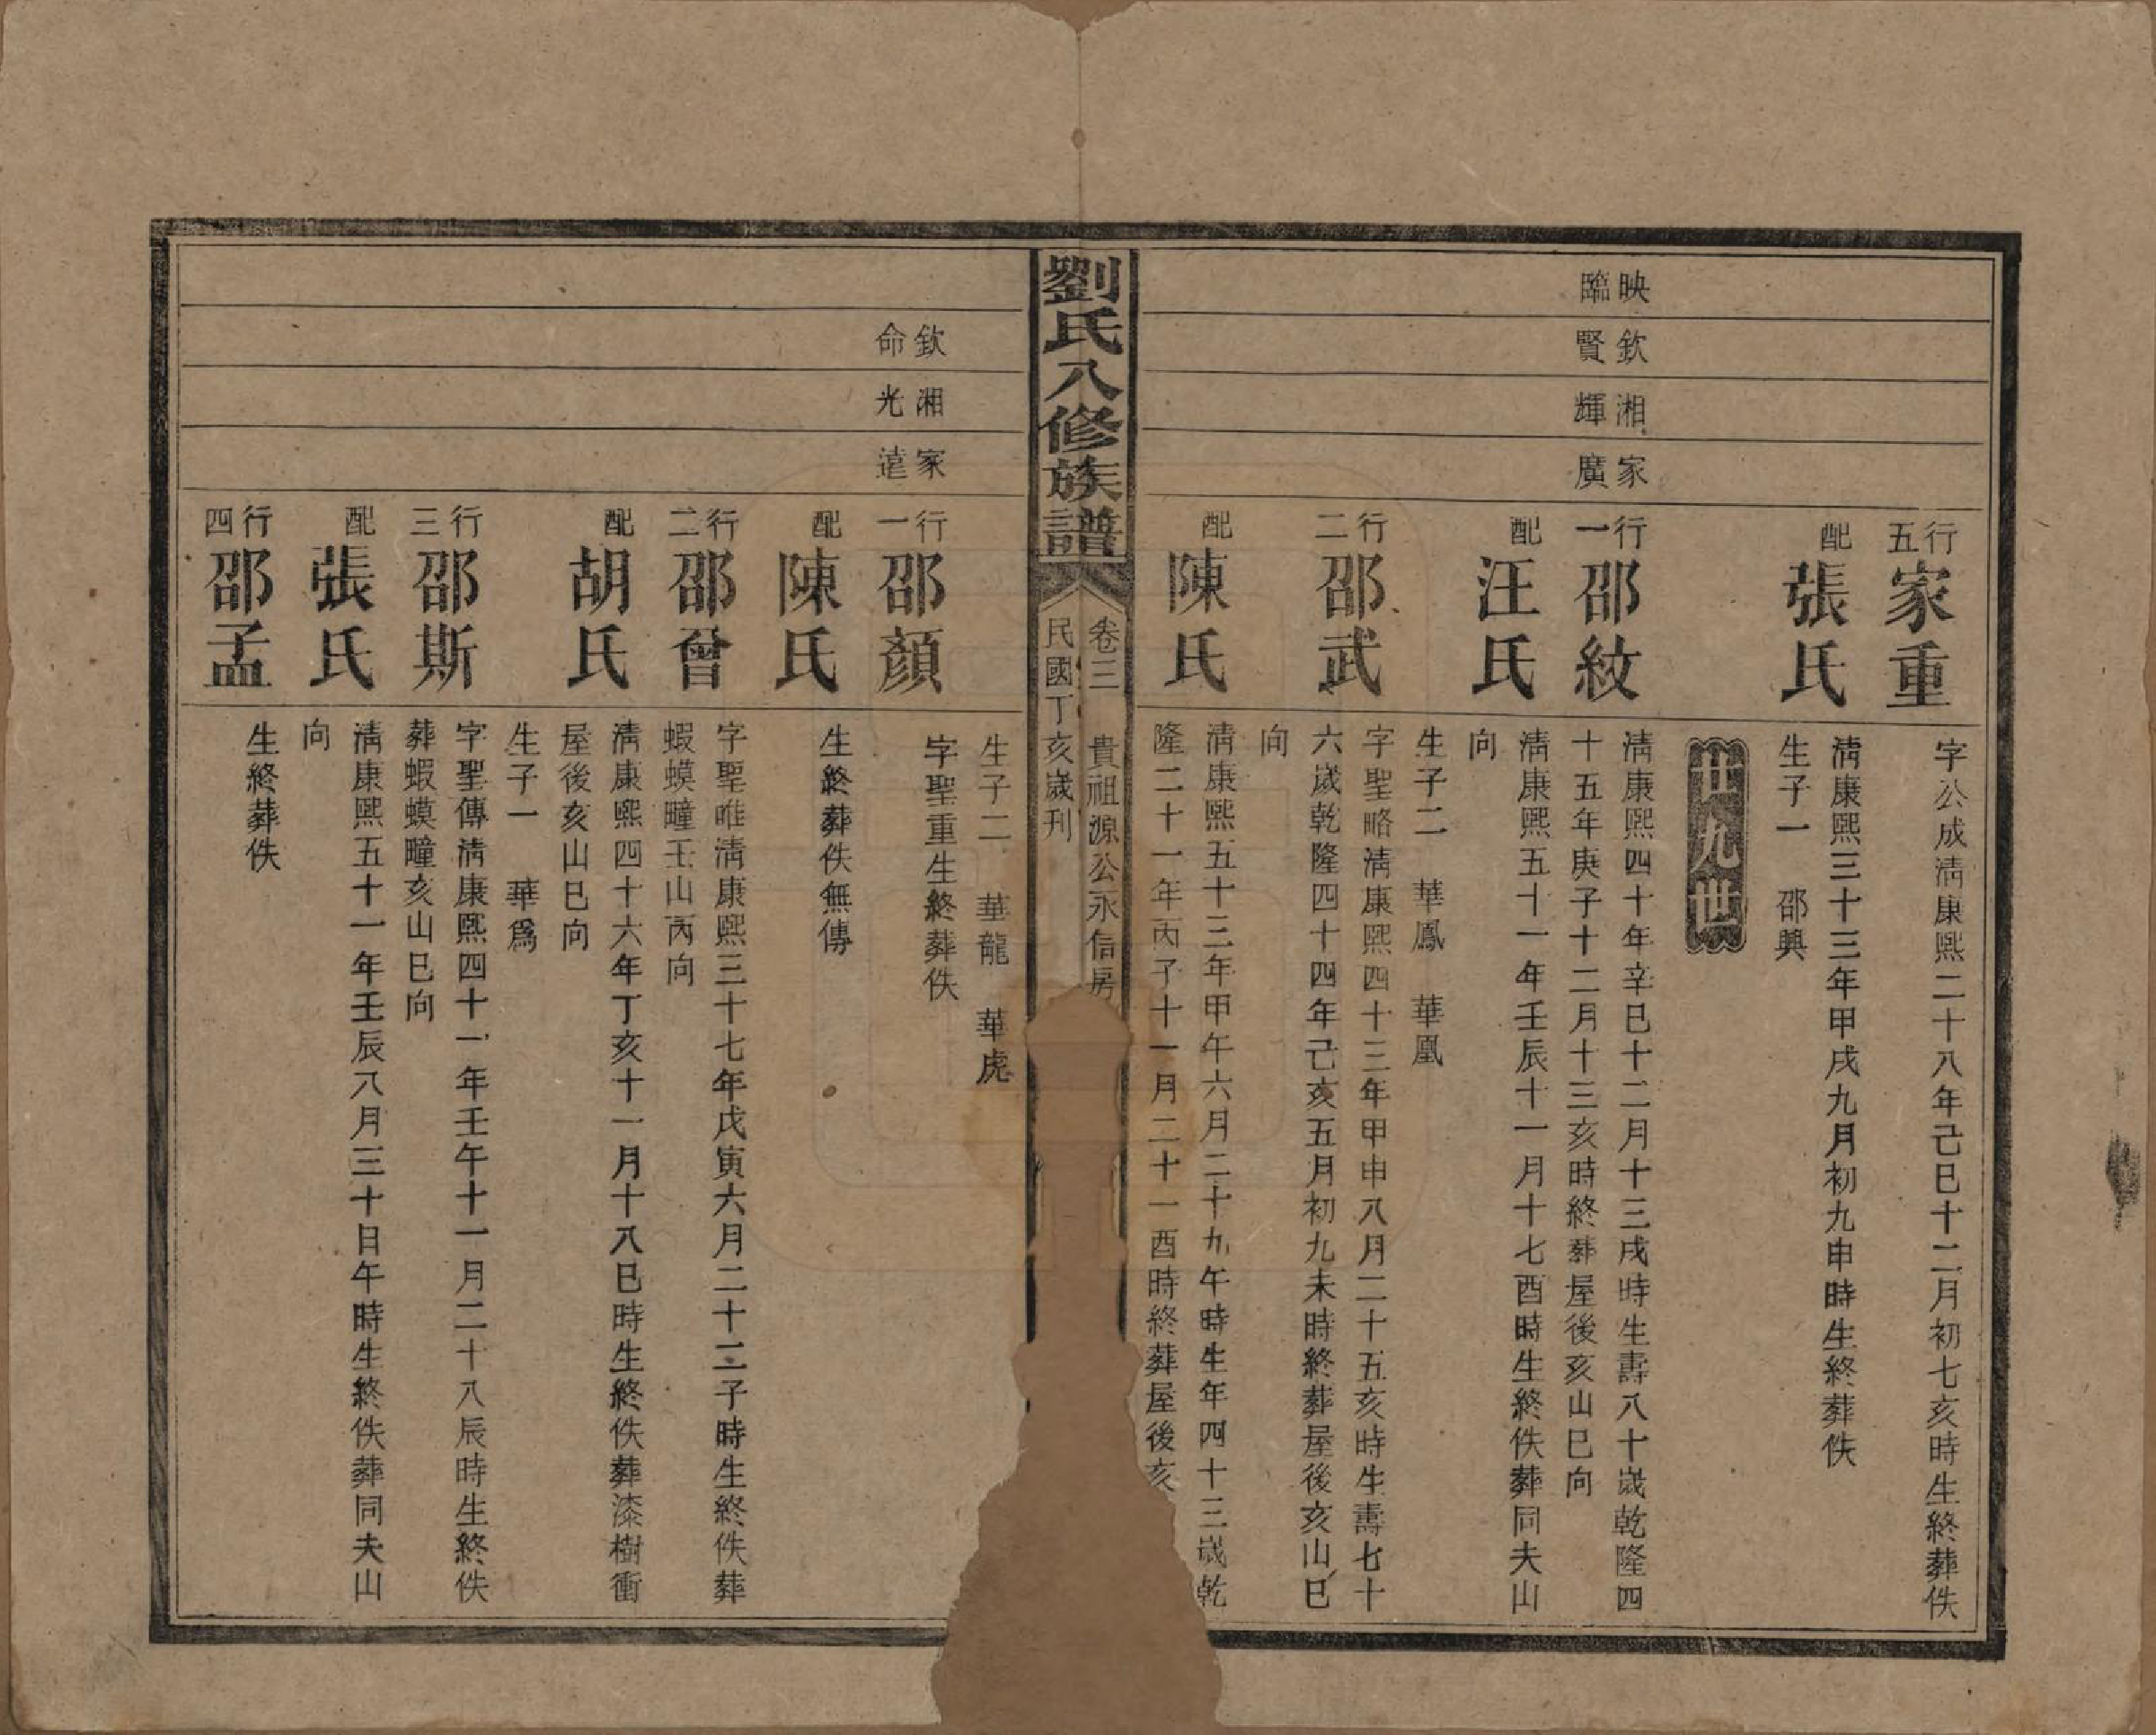 行五
家重
字公成淸康熙二十八年己巳十二月初七亥時生終葬佚
配
張氏
淸康熙三十三年甲戌九月初九申時生終葬佚
生子一　邵興
卄九世
映臨
欽賢
湘輝
家廣
行一
邵紋
淸康熙四十年辛巳十二月十三戌時生壽八十歲乾隆四
十五年庚子十二月十三亥時終葬屋後亥山巳向
配
汪氏
淸康熙五十一年壬辰十一月十七酉時生終佚葬同夫山
向
生子二　華鳳　華凰
行二
邵武
字聖略淸康熙四十三年甲申八月二十五亥時生壽七十
六歲乾隆四十四年己亥五月初九未時終葬屋後亥山巳
向
配
陳氏
淸康熙五十三年甲午六月二十九午時生年四十三歲乾
隆二十一年丙子十一月二十一酉時終葬屋後亥
劉氏八修族譜
卷三　貴祖源公永信房
民國丁亥歲刊
生子二　華龍　華虎
欽命
湘光
家遠
行一
邵顏
字聖重生終葬佚
配
陳氏
生終葬佚無傳
行二
邵曾
字聖唯淸康熙三十七年戊寅六月二十二子時生終佚葬
蝦蟆疃壬山丙向
配
胡氏
淸康熙四十六年丁亥十一月十八巳時生終佚葬漆樹衝
屋後亥山巳向
生子一　華爲
行三
邵斯
字聖傳淸康熙四十一年壬午十一月二十八辰時生終佚
葬蝦蟆疃亥山巳向
配
張氏
淸康熙五十一年壬辰八月三十日午時生終佚葬同夫山
向
行四
邵孟
生終葬佚